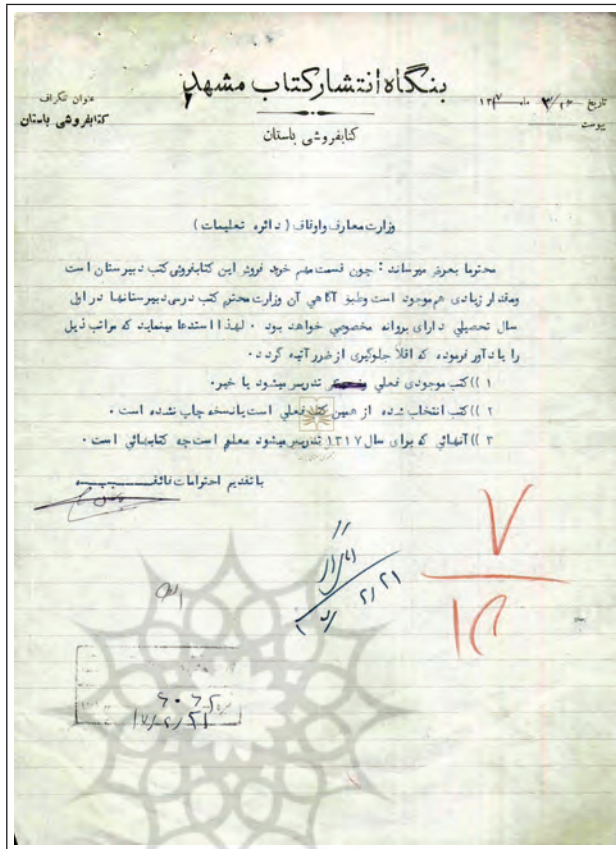 بنگاه انتشار کتاب مشهد
عنوان تلگراف
کتابفروشی باستان
کتابفروشی باستان
تاریخ ماه ۱۳۱۷
پیوست
وزارت معارف واوقاف ( دائره تعلیمات )
محترما بعرض میرساند : چون قسمت مهم خرید فروش این کتابفروشی کتب دبیرستان است
ومقدار زیادی هم موجود است وطبق آگاهی آن وزارت محترم کتب درسی دبیرستانها در اول
سال تحصیلی دارای پروانه مخصوصی خواهد بود . لهذا استدعا مینماید که مراتب ذیل
را یادآور فرموده که اقلاً جلوگیری از ضرر آتیه گردد .
۱ )) کتب موجودی فعلی تدریس میشود یا خیر .
۲ )) کتب انتخاب شده از همین کتب فعلی است یا نسخه چاپ نشده است .
۳ )) آنهائی که برای سال ۱۳۱۷ تدریس میشود معلم است چه کتابهائی است .
با تقدیم احترامات فائقه